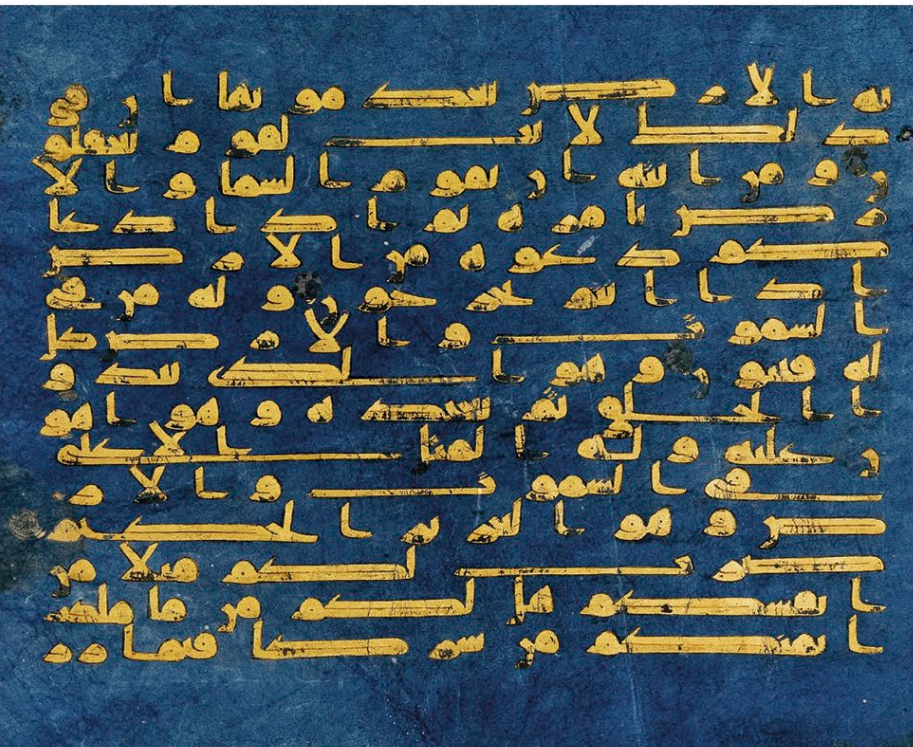 به الارض بعد موتها ان في
ذلك لايت لقوم يعقلو
ن ومن ايته ان تقوم السما والا
رض بامره ثم اذا دعا
كم دعوة من الارض
اذا انتم تخرجون وله من في
السموت والارض كل
له قنتون وهو الذي يبدو
ا الخلق ثم يعيده وهو اهو
ن عليه وله المثل الاعلى
في السموت والار
ض وهو العزيز الحكيم
ضرب لكم مثلا من
انفسكم هل لكم من ما ملكت
ايمنكم من شركا فيما رز